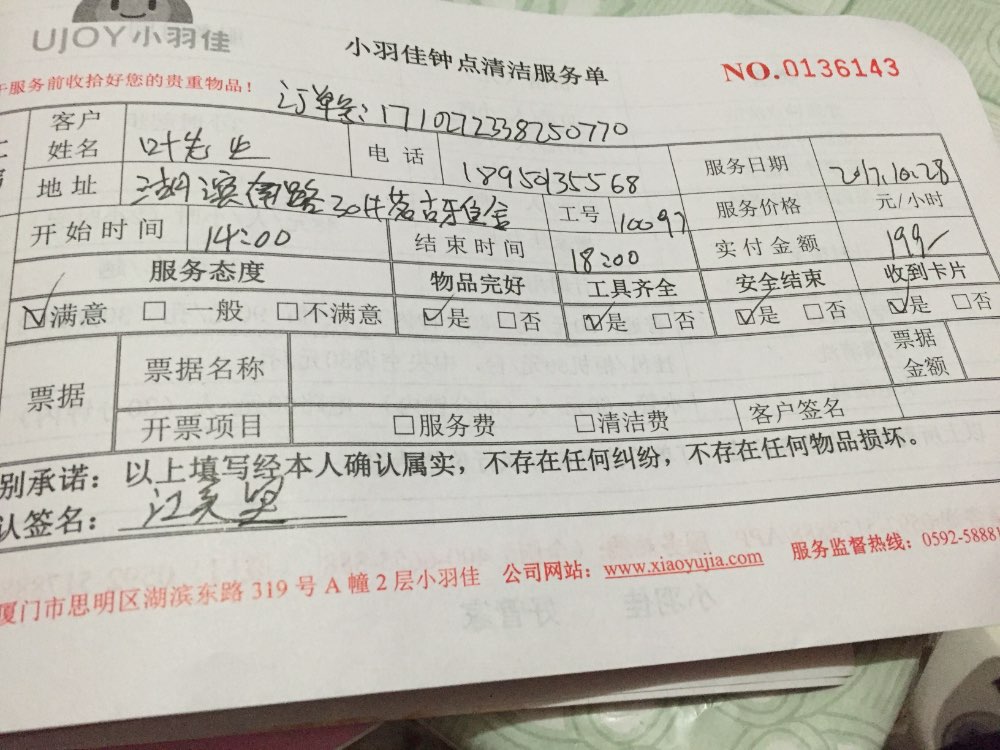 UJOY小羽佳
小羽佳钟点清洁服务单
NO.0136143
服务前收拾好您的贵重物品！
订单号：1710272338250770
客户姓名 叶先生 电话 18950135568 服务日期 2017.10.28
地址 湖滨南路 工号 10097 服务价格 元/小时
开始时间 14:00 结束时间 18:00 实付金额 199
服务态度 物品完好 工具齐全 安全结束 收到卡片
☑满意 □一般 □不满意 ☑是 □否 ☑是 □否 ☑是 □否 ☑是 □否
票据 票据名称 票据金额
开票项目 □服务费 □清洁费 客户签名
别承诺：以上填写经本人确认属实，不存在任何纠纷，不存在任何物品损坏。
认签名：
厦门市思明区湖滨东路 319 号 A 幢 2 层小羽佳 公司网站：www.xiaoyujia.com 服务监督热线：0592-58881